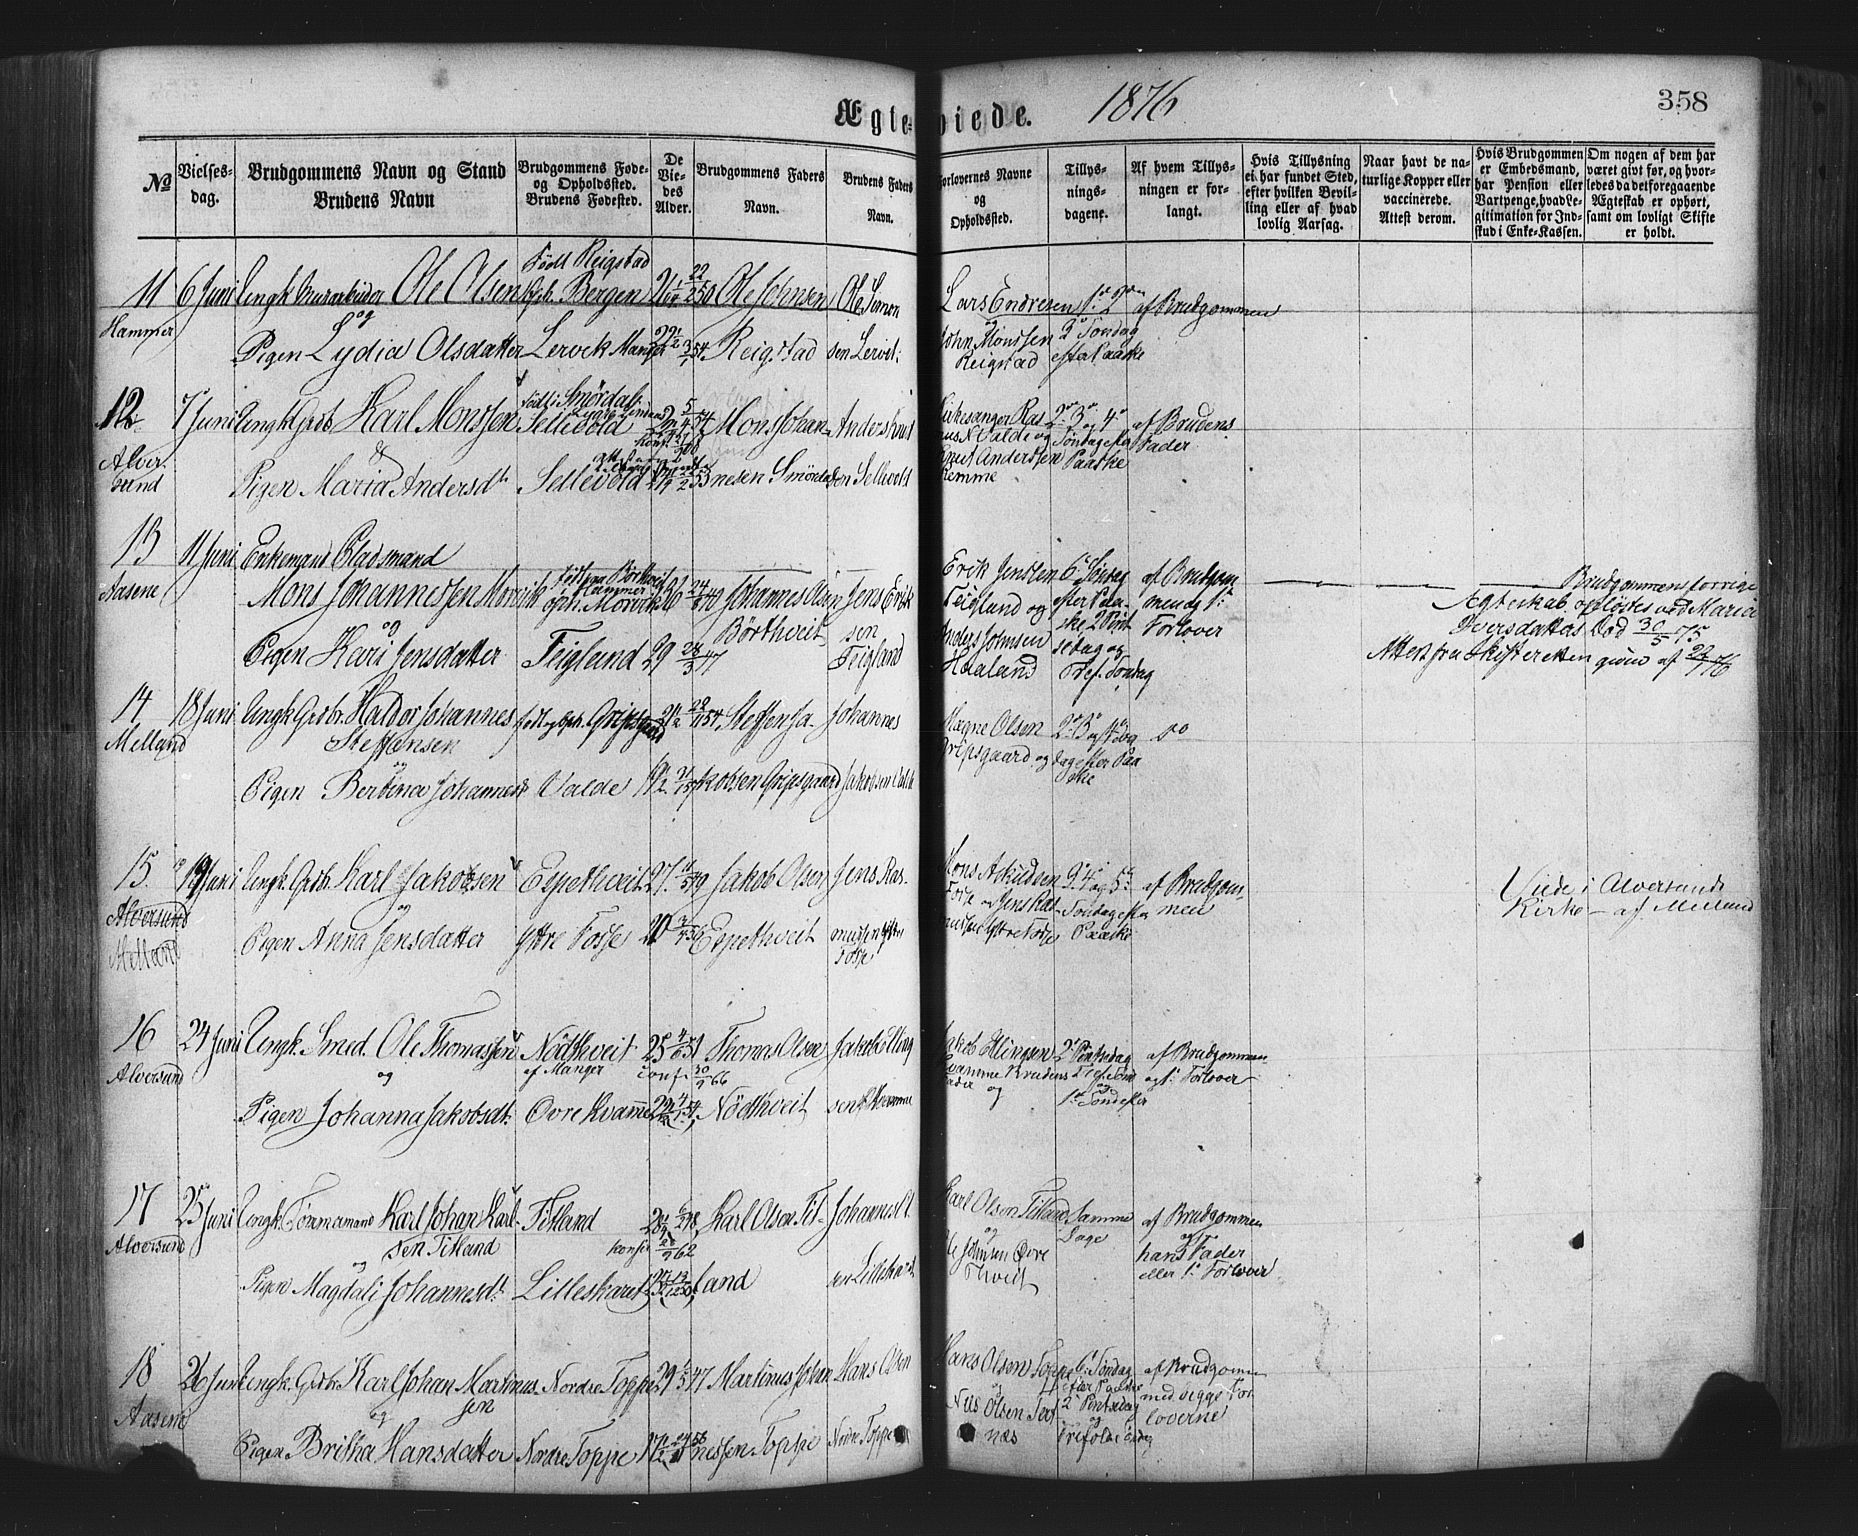 Ægteviede.
1876
358
No
Vielsesdag.
Brudgommens Navn og Stand
Brudens Navn
Brudgommens Føde- og Opholdssted.
Brudens Fødested.
De Viedes Alder.
Brudgommens Faders Navn.
Brudens Faders Navn.
Forlovernes Navne og Opholdssted.
Tillysningsdagene.
Af hvem Tillysningen er forlangt.
Hvis Tillysning ei har fundet Sted, efter hvilken Bevilling eller af hvad lovlig Aarsag.
Naar havt de naturlige Kopper eller vaccinerede. Attest derom.
Hvis Brudgommen er Embedsmand, har Pension eller Vartpenge, hvad Legitimation for Indskud i Enke-Kassen.
Om nogen af dem har været givt før, og hvorledes da det foregaaende Ægteskab er ophørt, samt om lovligt Skifte er holdt.
11
Hammer
6 Juni
Ungk. Ole Olsen
og
Pigen Lydia Olsdatter
Født Reigstad
Bergen
Lervik Manger
Ole Johnsen
Reigstad
Ole Simonsen Lervik
Lars Endresen
John Monssen
Reigstad
1ste 2den
3die Søndag
efter Paaske
af Brudgommen
12
Alversund
7 Juni
Ungk. Grdb. Karl Monssen
&
Pigen Maria Andersdt.
Født i Smørdal
Sellevold
Sellevold
Mons Johannesen Smørdal
Anders Knutsen Sellevold
Kirkesanger Rasmus N Valde og
Knut Anderssen
Kemme
2den 3die og 4de
Søndag efter
Paaske
af Brudens
Fader
13
Aasene
11 Juni
Enkemand Pladsmand
Mons Johannessen Morvik
og
Pigen Kari Jensdatter
født paa Børthveit
i Hammer
oph. Morvik
Teigland
36 24/8 40
29 28/3 47
Johannes Olsen
Børthveit
Jens Eriksen
Teigland
Erik Jenssen
Teigland og
Anders Johnsen
Haaland
6te Søndag
efter Paaske 2 Pintsedag og
Tref. Søndag
af Brudgommen og 1ste
Forlover
Brudgommens forrige
Ægteskab opløstes ved Maria
Iversdatters Død 30/5 75
Attest fra Skifteretten given af 22/1 76
14
Melland
18 Juni
Ungk. Grdbr. Haldor Johannes
Steffensen
og
Pigen Berthina Johannesdt.
født og oph. Gripsgaard
Valde
Steffen Jakobsen Gripsgaard
Johannes
Jakobsen Valde
Magne Olsen
Gripsgaard og
2den 3die og 4de Søndag efter Paaske
do
15
Alversund
Melland
19 Juni
Ungk. Grdb. Karl Jakobsen
og
Pigen Anna Jensdatter
Espethveit
Ytre Fosse
27 11/5 49
20 3/4 56
Jakob Olsen
Espethveit
Jens Rasmussen Ytre
Fosse
Mons Askildsen
Fosse og Jens Rasmussen Ytre Fosse
3die 4de og 5te
Søndag efter
Paaske
af Brudgommen
Viede i Alversunds
Kirke – af Melland
16
Alversund
24 Juni
Ungk. Smed. Ole Thomassen
og
Pigen Johanna Jakobsdt.
Nödthveit
af Manger
Øvre Kvamme
25 4/6 51
conf. 30/9 66
Thomas Olsen
Nödthveit
Jakob Ellingsen Ø Kvamme
Jakob Ellingsen
Kvamme Brudens
Fader og
2 Pintsedag
Tref. Sønd
og
1ste Sønd efter
af Brudgommen
og 1ste Forlover
17
Alversund
25 Juni
Ungk. Tömmermand Karl Johan Karlsen Titland
og
Pigen Magdali Johannesdt.
Titland
Lilleskaret
Karl Olsen Titland
Johannes O.
sen Lilleskaret
Karl Olsen Titland
og
Ole Johnsen Øvre
Thveit
Samme
Dage
af Brudgommen
og
hans Fader
eller 1ste Forlover
18
Aasene
26 Juni
Ungk. Grdb. Karl Johan Martinussen
og
Pigen Britha Hansdatter
Nordre Toppe
Nordre Toppe
Martinus Johannessen Toppe
Hans Olsen
Nordre Toppe
Hans Olsen Toppe
og
Nils Olsen
6te Søndag
efter Paaske
2 Pintsedag
og
Trefold. Søndag
af Brudgommen
med begge Forloverne